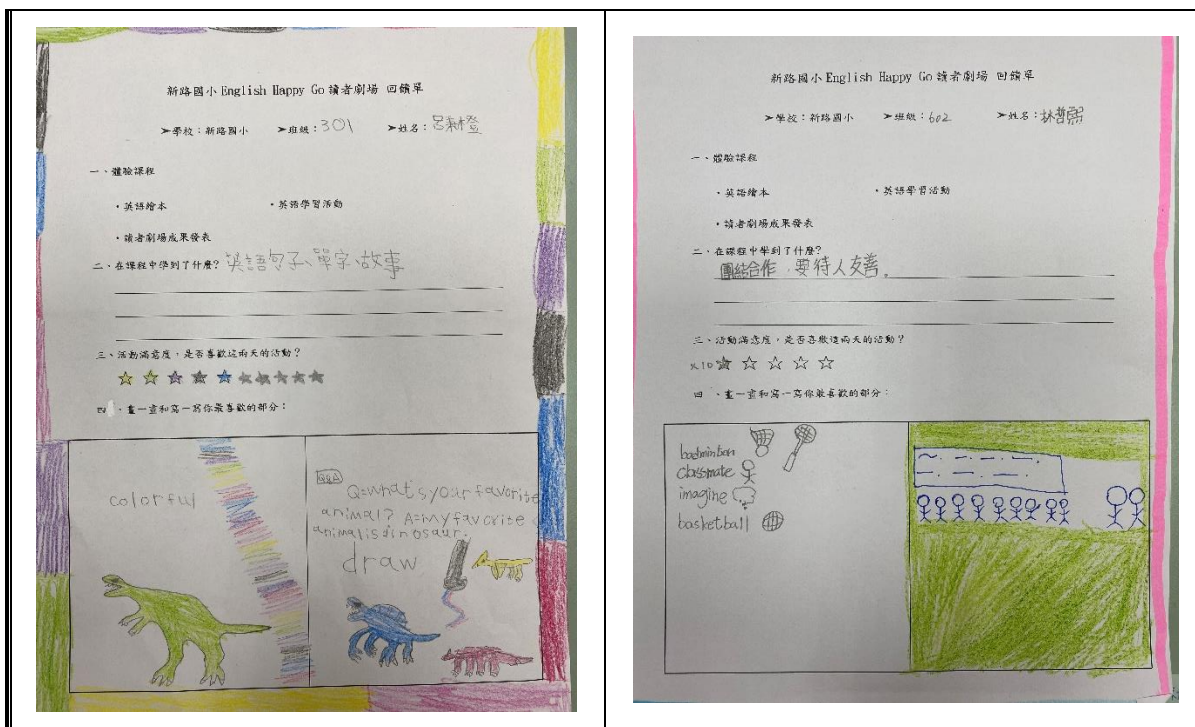 新路國小 English Happy Go 讀者劇場 回饋單
➤學校：新路國小 ➤班級：301 ➤姓名：
一、體驗課程
・英語繪本 ・英語學習活動
・讀者劇場成果發表
二、在課程中學到了什麼？英語句子、單字、故事
三、活動滿意度，是否喜歡這兩天的活動？
四、畫一畫和寫一寫你最喜歡的部分：
colorful
Q&A
Q=what's your favorite
animal? A=my favorite
animalisdinosaur.
draw
新路國小 English Happy Go 讀者劇場 回饋單
➤學校：新路國小 ➤班級：602 ➤姓名：林哲
一、體驗課程
・英語繪本 ・英語學習活動
・讀者劇場成果發表
二、在課程中學到了什麼？
團結合作，要待人友善。
三、活動滿意度，是否喜歡這兩天的活動？
x10
四、畫一畫和寫一寫你最喜歡的部分：
badminton
classmate
imagine
basketball